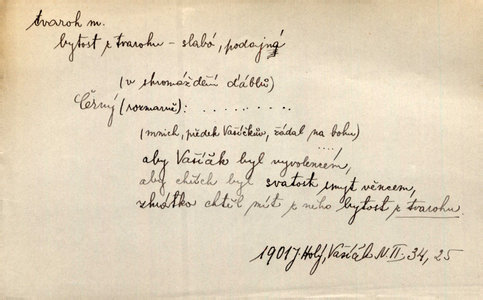 tvaroh m.
bytost z tvarohu – slabá, podajná
(v shromáždění ďáblů)
Černý (rozmarně): . . . . . . . .
(mnich, předek Vašíčkův, žádal na bohu)
. . . . !
aby Vašíček byl vyvolencem,
aby chlích byl svatosti smyt věncem,
zkrátka chtěl mít z něho bytost z tvarohu.
1901 J Holý, Vašíček N. II. 34, 25